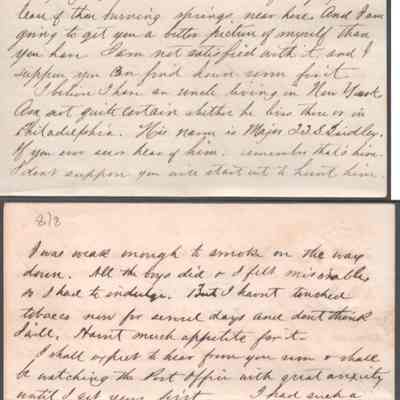 tear of those burning springs, near here. And I am
going to get you a better picture of myself than
you have. I am not satisfied with it, and I
suppose you can find some for it.
I believe I have an uncle living in New York
Am not quite certain whether he lives there or in
Philadelphia. His name is Major
If you ever see or hear of him. remember that's him.
I don't suppose you will start out to hunt him.
8/8
I was weak enough to smoke on the way
down. All the boys did & I felt miserable
so I had to indulge. But I havnt touched
tobacco now for several days and dont think
I will. Havnt much appetite for it.
I shall expect to hear from you soon & shall
be watching the Post Office with great anxiety
until I get your first I had such a